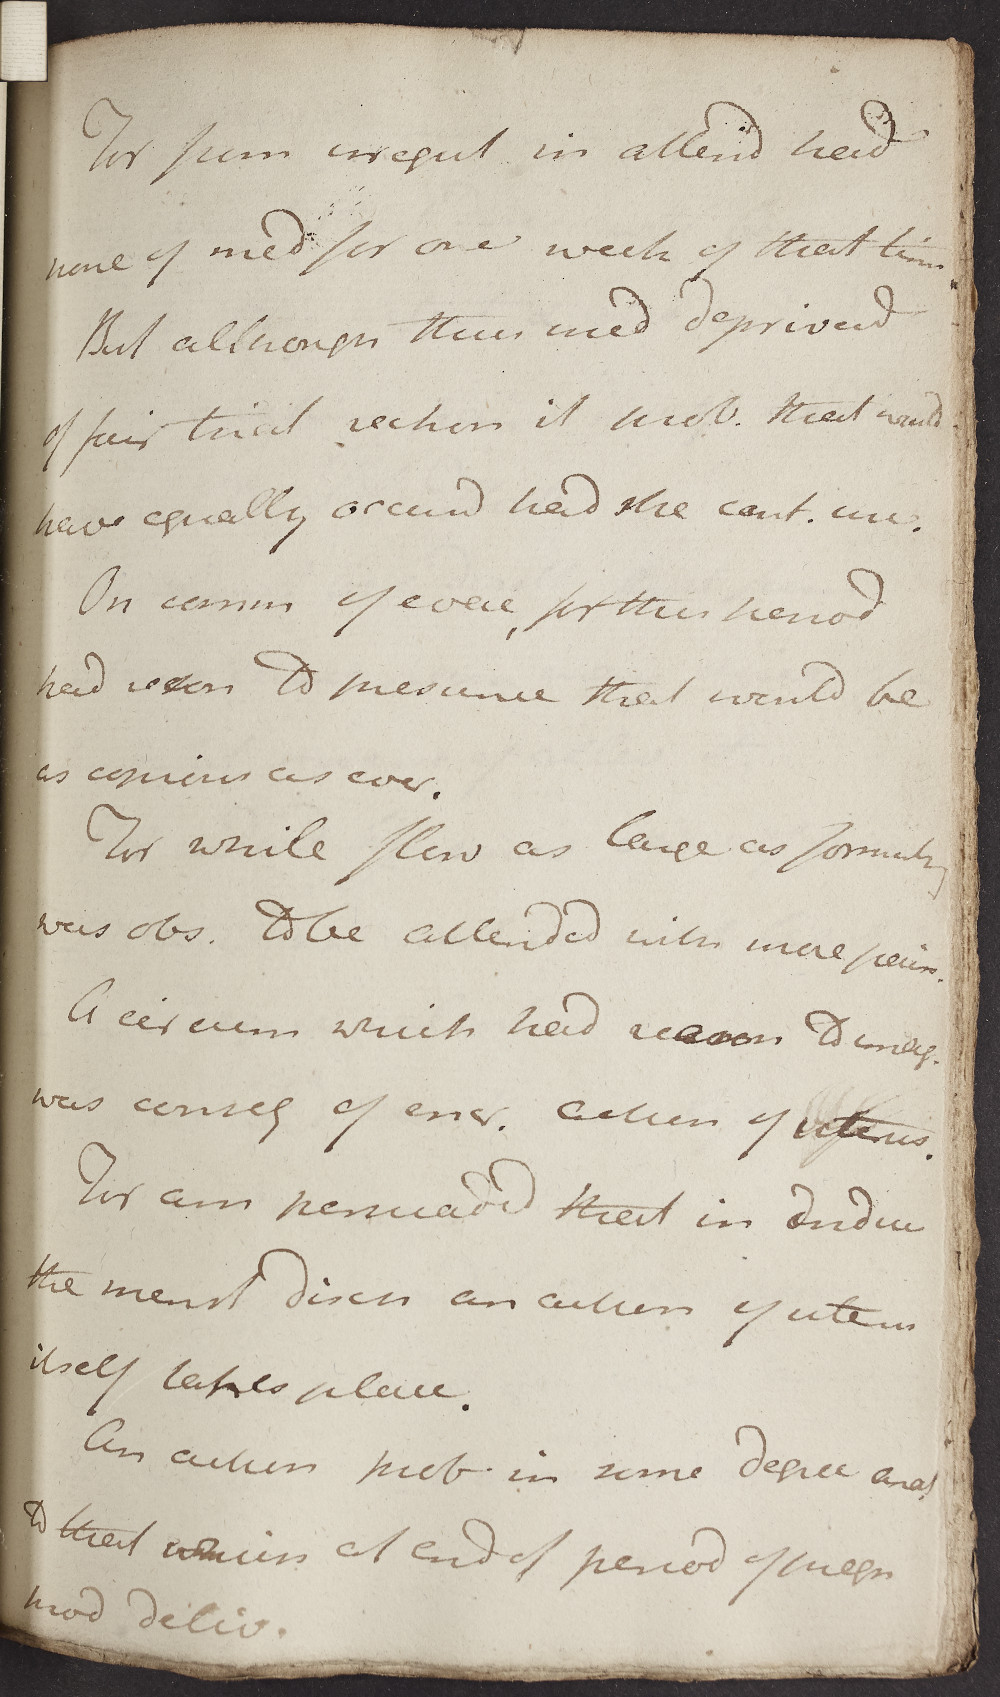 For from irregul in attend had
none of med for one week of that time
But although thus med deprived
of fair trial reckon it prob. that would
have equally occurd had she cont. use.
On comm of evac, for this period
had reason to presume that would be
as copious as ever.
For while flow as large as formerly
was obs. to be attended with more pain.
A circum which had reason to imag.
was conseq of incr. action of uterus.
For am persuaded that in induc
the menst disch an action of uterus
itself takes place.
An action prob in some degree anal
to that which at end of period of pregn
prod deliv.